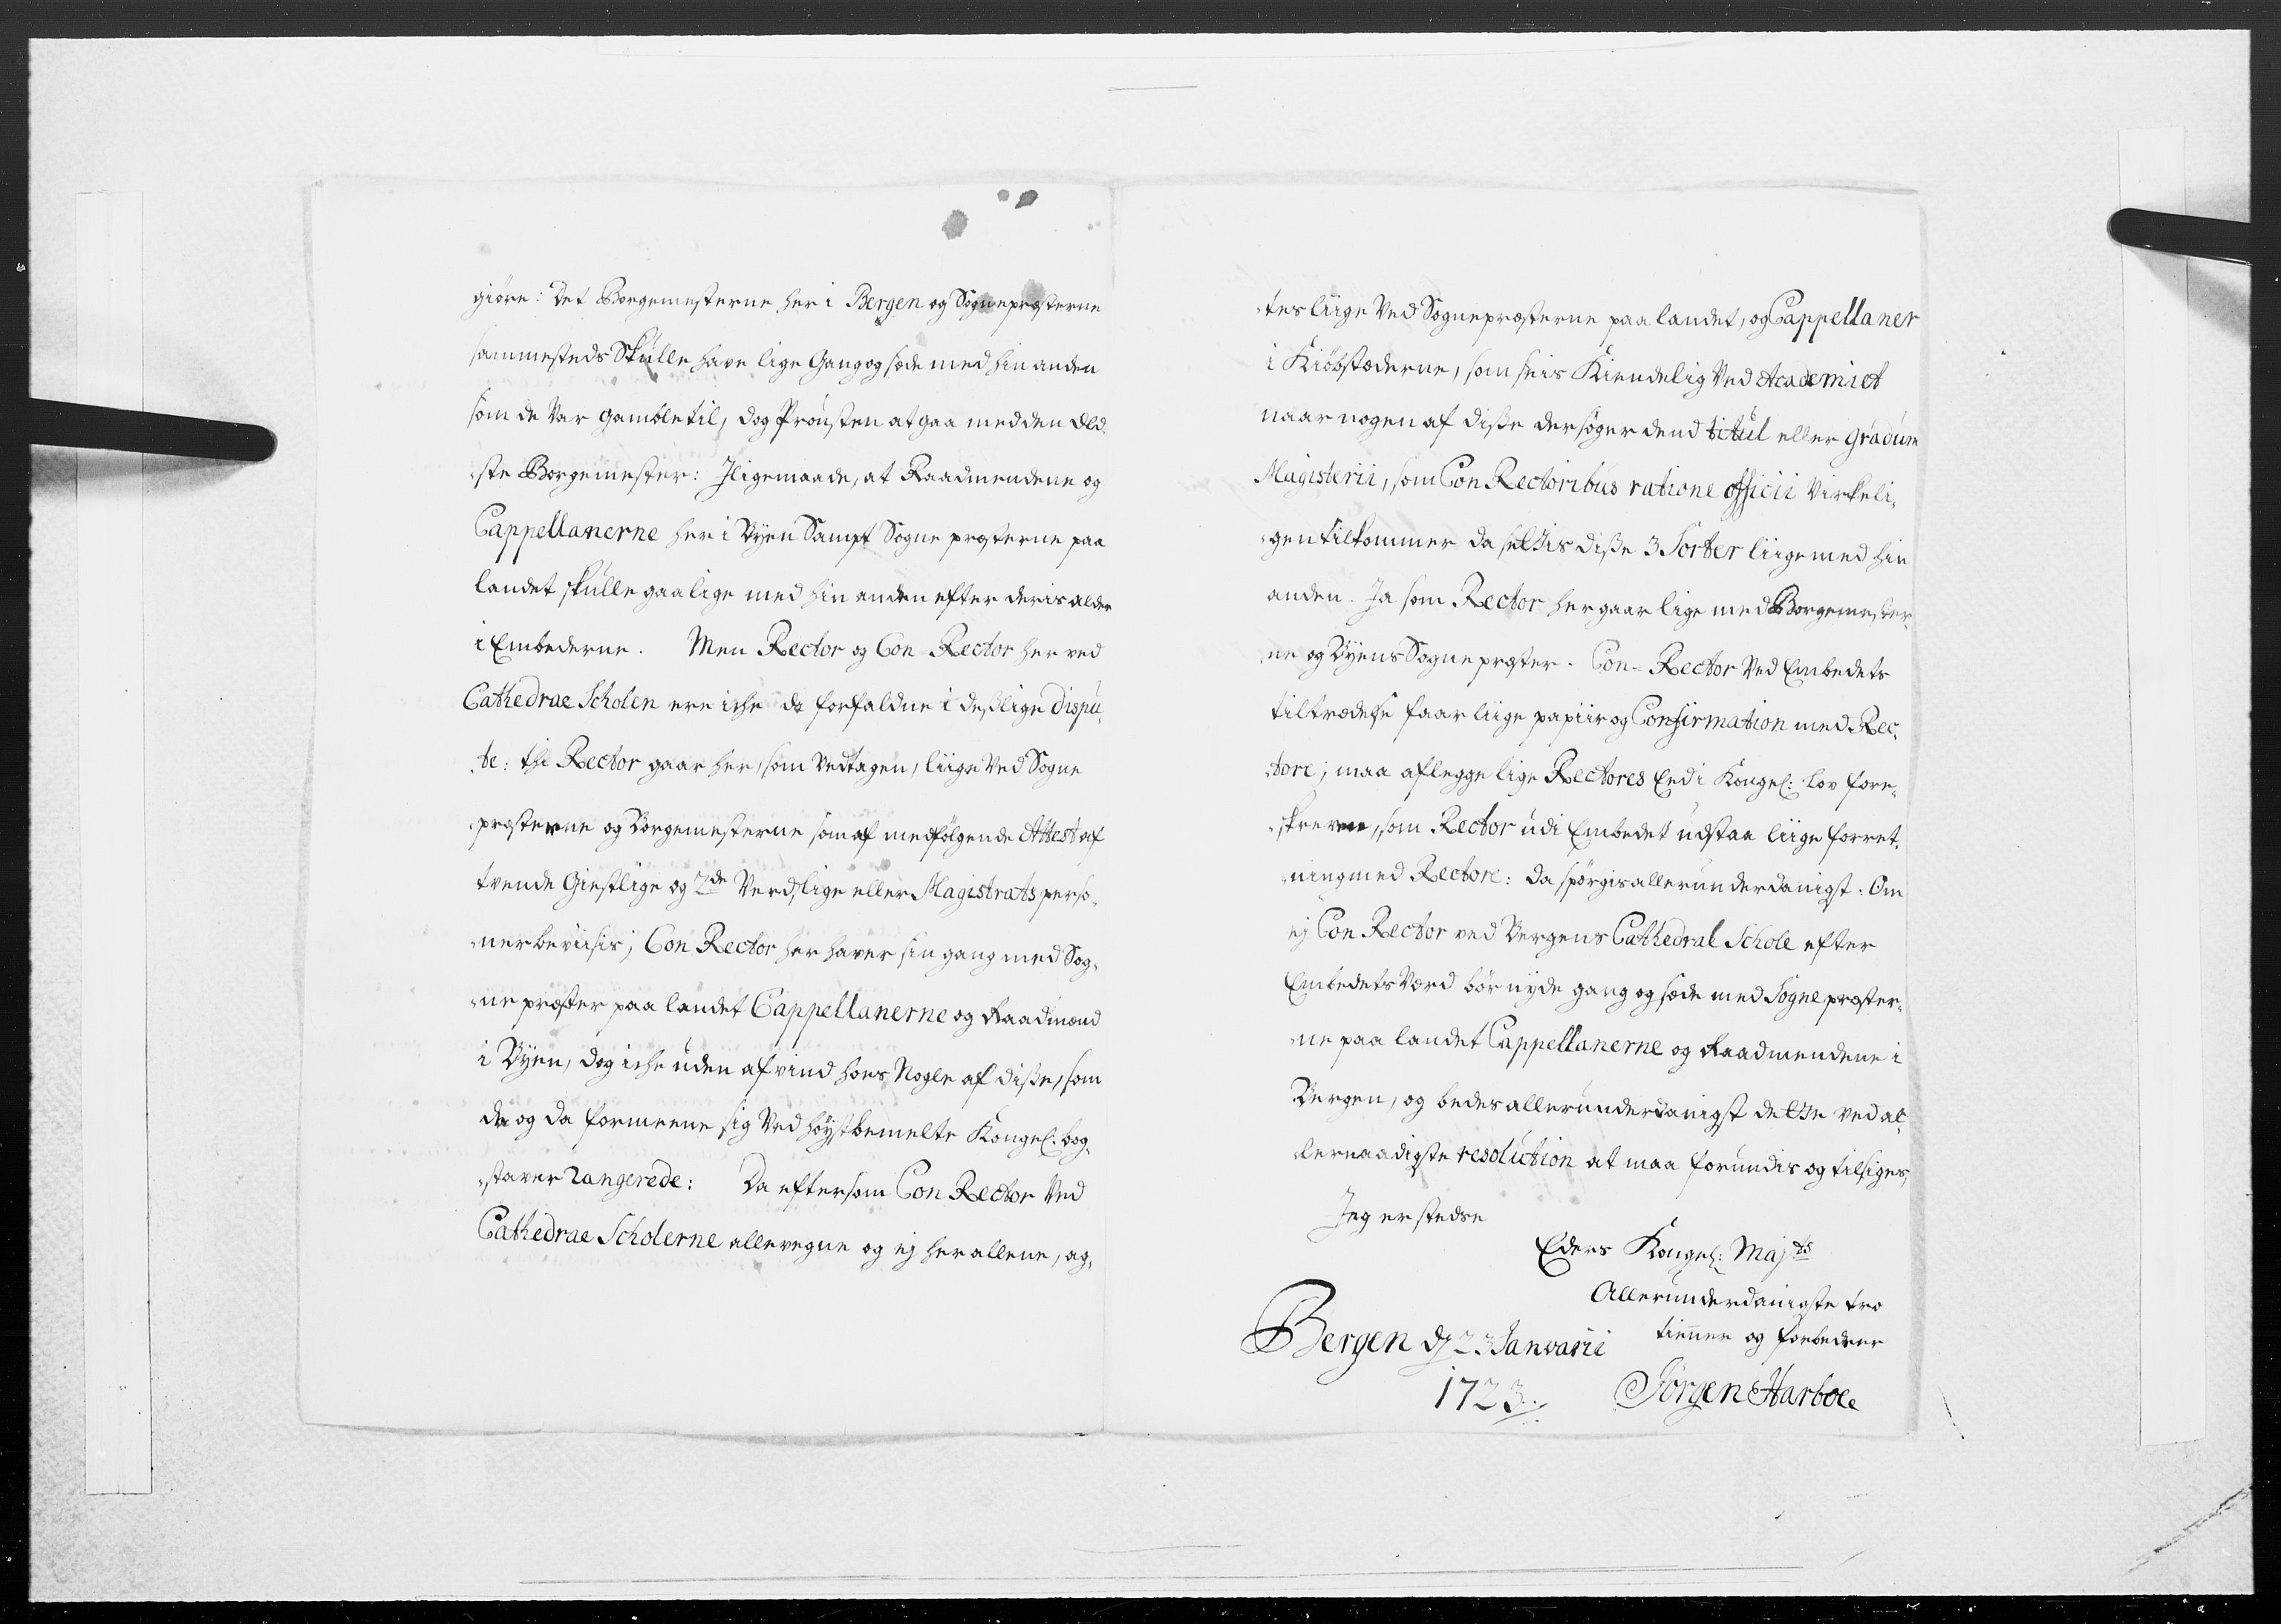 giöre: Det Borgemesterne her i Bergen og Sognepræsterne
sammesteds Skulle have lige Gang og sæde med hin anden
som de var gamble til, dog Prousten at gaa med den Æld¸
¸ste Borgemester: Iligemaade, at Raadmendene og
Cappellanerne her i Byen Sampt Sogne præsterne paa
landet skulle gaa lige med hin anden efter deris alder
i Embederne. Men Rector og Con-Rector her ved
Cathedrae Scholen ere iche da forfaldne i deslige dispu¸
¸te: thi Rector gaar her, som vedtagen, liige Ved Sogne
¸præsterne og Borgemesterne som af medfølgende Attest af
tvende Giestlige og 2de Verdslige eller Magistrats perso¸
¸ner beviisis; Con Rector her haver sin gang med Sog¸
¸ne præster paa landet Cappellanerne og Raadmænd
i Byen, dog iche uden afvind hoes Nogle af disse, som
da og da formeene sig Ved høystbemelte Kongel. bog¸
¸staver rangerede: Da eftersom Con Rector Ved
Cathedrae Scholerne allevegne og ej her allene, ag¸
¸tes liige Ved Sognepræsterne paa landet, og Cappellaner
i Kiøbstæderne, som seis Kiendelig Ved Academiet
naar nogen af disse der søger dend titul eller gradum
Magisterii, som Con Rectoribus ratione officii Virkeli¸
¸gen tilkommer da settis disse 3 Sorter liige med hin
anden. Ja som Rector her gaar lige med Borgemester¸
¸ne og Byens Sognepræster. Con-Rector Ved Embedets
tiltrædelse faar liige papiir og Confirmation med Rec¸
¸tore; maa aflegge lige Rectores Eed i Kongel: lov fore¸
¸skreven, som Rector udi Embedet udstaa liige forret¸
¸ning med Rectore: da spørgis allerunderdanigst: Om
ej Con Rector ved Bergens Cathedral Schole efter
Embedets Værd bør nyde gang og sæde med Sognepræster¸
¸ne paa landet Cappellanerne og Raadmendene i
Bergen, og bedes allerunderdanigst dette ved al¸
¸lernaadigste resolution at maa forundis og tilsiges,
Jeg er stedse
Eders Kongel: Majts
Allerunderdanigste tro
tienner og forbeder
Bergen dj 23 Janvarii
1723.
Jörgen Harboe